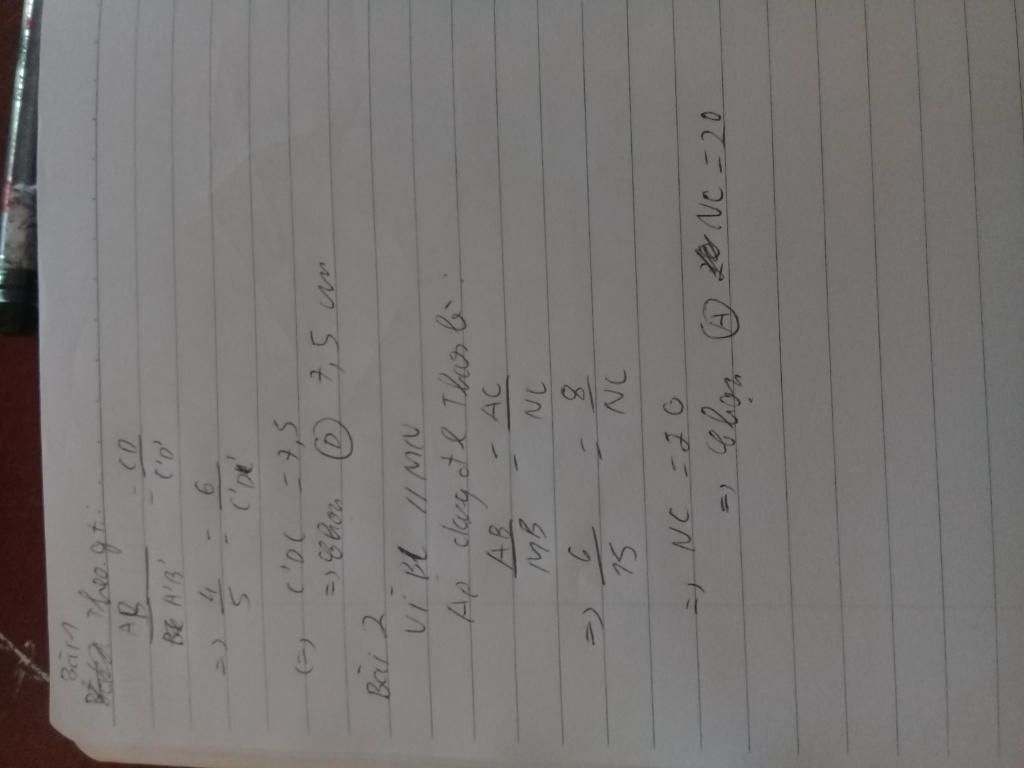 Bài 1
Theo gt:
AB / A'B' = CD / C'D'
=) 4 / 5 = 6 / C'D'
(=) C'D' = 7,5
=) Chọn (D) 7,5 cm
Bài 2
Vì BC // MN
Áp dụng đl Thales:
AB / MB = AC / NC
=) 6 / 15 = 8 / NC
=) NC = 20
=) Chọn (A) NC = 20